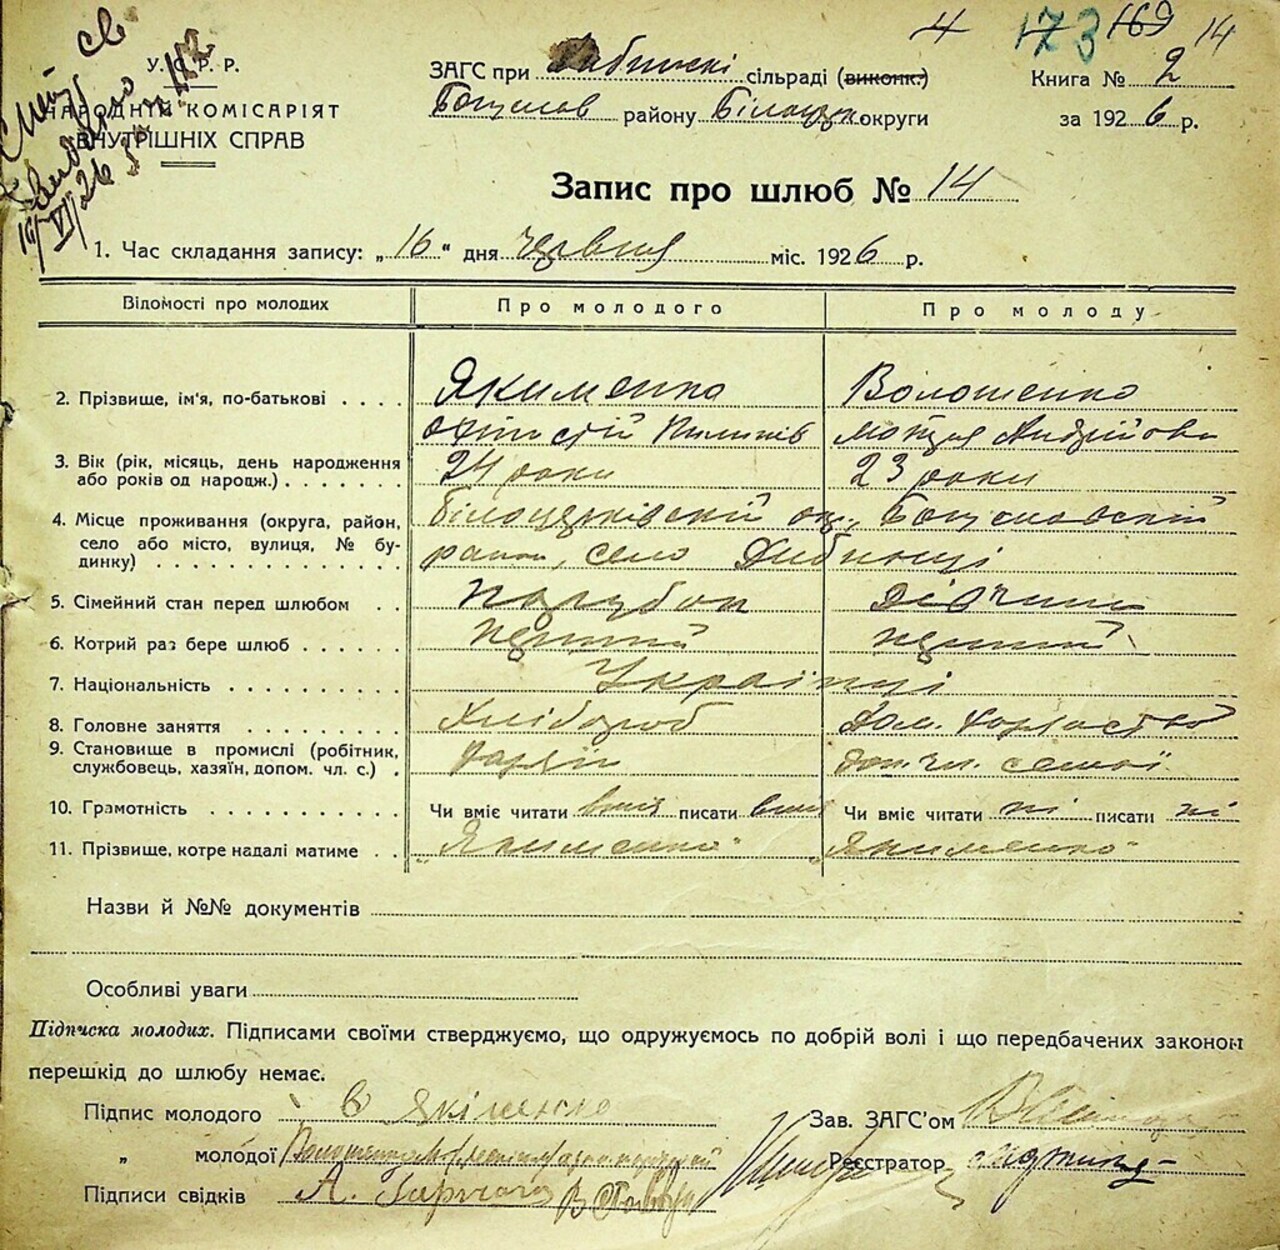 4 173 169 14
У.С.Р.Р.
НАРОДНІЙ КОМІСАРІЯТ
ВНУТРІШНІХ СПРАВ
ЗАГС при Дибинскі сільраді (виконк.)
Богуслав району Білоцерк. округи
Книга № 2
за 1926 р.
Запис про шлюб № 14
16/VI/26
1. Час складання запису: „16" дня червня міс. 1926 р.
Відомості про молодих Про молодого Про молоду
2. Прізвище, ім'я, по-батькові Якименко Волошенко
Пилипів Мотря Андрійова
3. Вік (рік, місяць, день народження або років од народж.) 24 роки 23 роки
4. Місце проживання (округа, район, село або місто, вулиця, № будинку) Білоцерківский ок., Богуславский
район, село Дибинці
5. Сімейний стан перед шлюбом парубок дівчина
6. Котрий раз бере шлюб перший перший
7. Національність Українці
8. Головне заняття Хлібороб Дом. хозяство
9. Становище в промислі (робітник, службовець, хазяїн, допом. чл. с.) доп. чл. семьї
10. Грамотність Чи вміє читати вміє писати вміє Чи вміє читати ні писати ні
11. Прізвище, котре надалі матиме „Якименко" „Якименко"
Назви й №№ документів
Особливі уваги
Підписка молодих. Підписами своїми стверджуємо, що одружуємось по добрій волі і що передбачених законом
перешкід до шлюбу немає.
Підпис молодого В Якіменко
Зав. ЗАГС'ом
„ молодої
Реєстратор
Підписи свідків А.